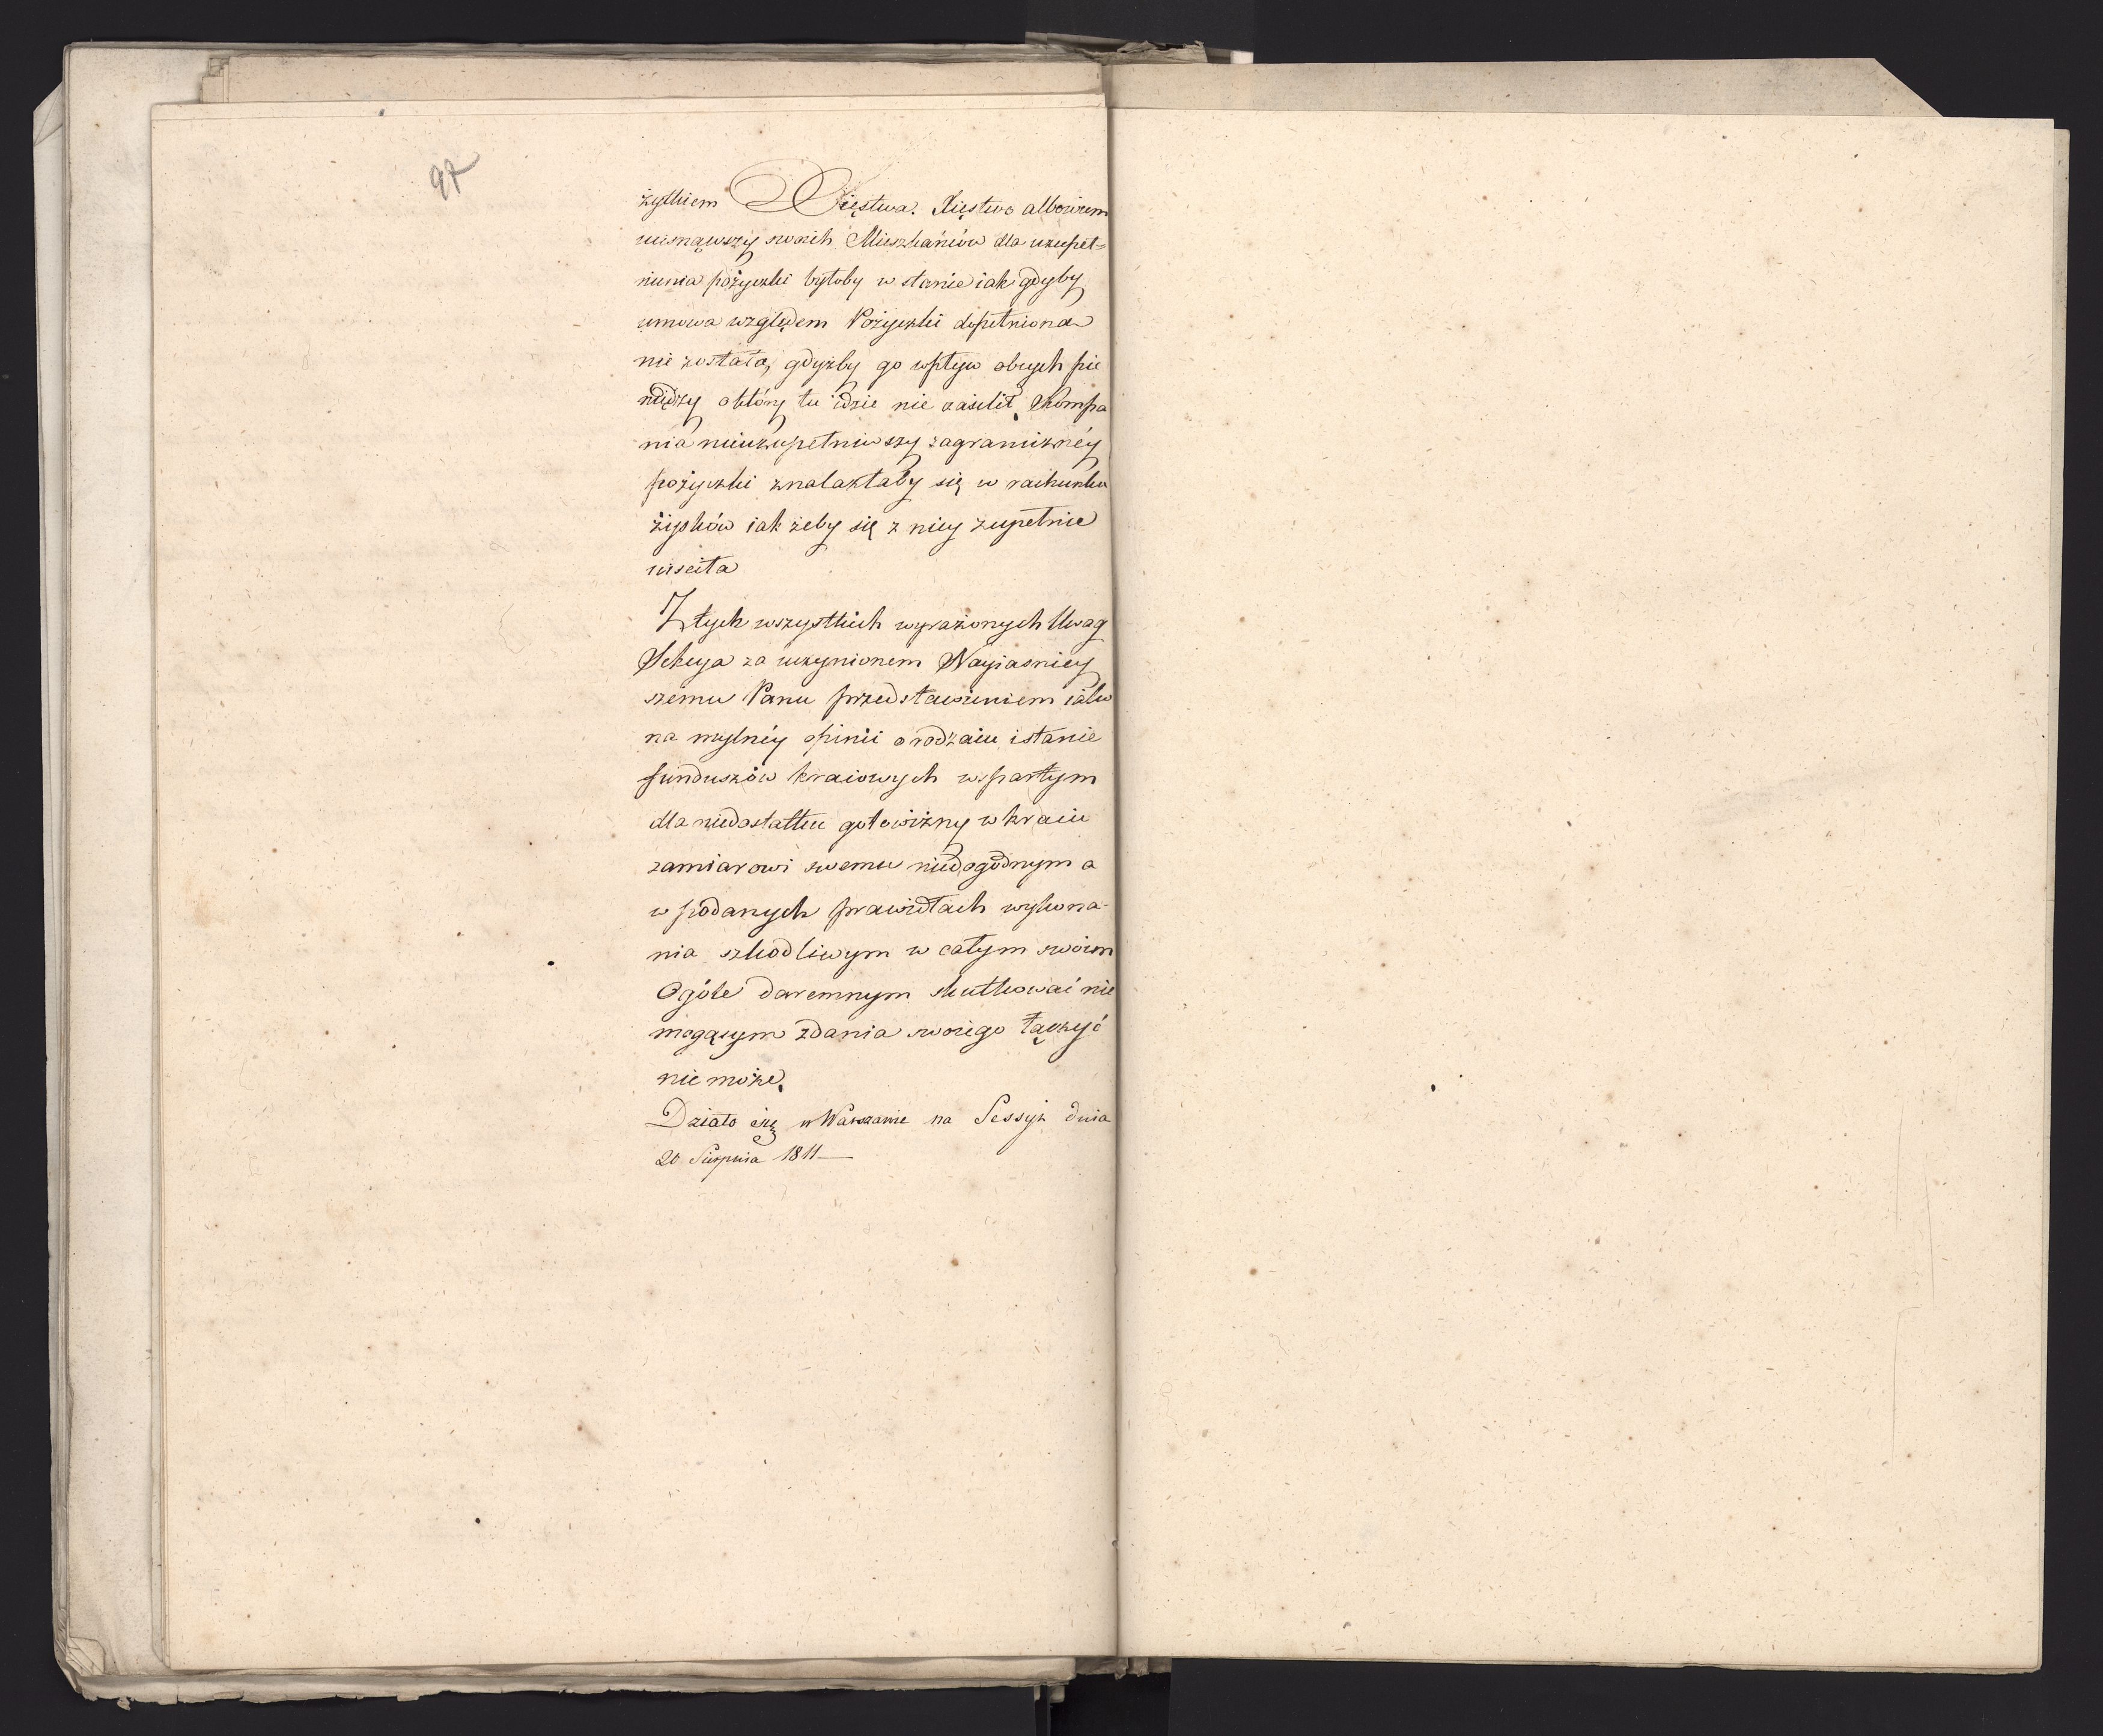 97
żytkiem Xięstwa. Xięstwo albowiem
ucisnąwszy swoich Mieszkańców dla uzupeł=
nienia pożyczki byłoby w stanie iak gdyby
umowa względem Pożyczki dopełniona
nie została, gdyżby go wpływ obcych pie
niędzy o który tu idzie nie zasilił, Kompa
nia nieuzupełniwszy zagraniczney
pożyczki znalazłaby się w rachunku
zysków iak żeby się z niey zupełnie
uiściła
Z tych wszystkich wyrażonych Uwag
Sekcya za uczynionem Nayiasniey
szemu Panu przedstawieniem iako
na mylnéy opinii o rodzaiu i stanie
funduszów kraiowych wspartym
dla niedostatku gotowizny w kraiu
zamiarowi swemu niedogodnym a
w podanych prawidłach wykona-
nia szkodliwym w całym swoim
Ogóle daremnym skutkować nie
mogącym zdania swoiego łączyć
nie może.
Działo się w Warszawie na Sessyi dnia
20 Sierpnia 1811